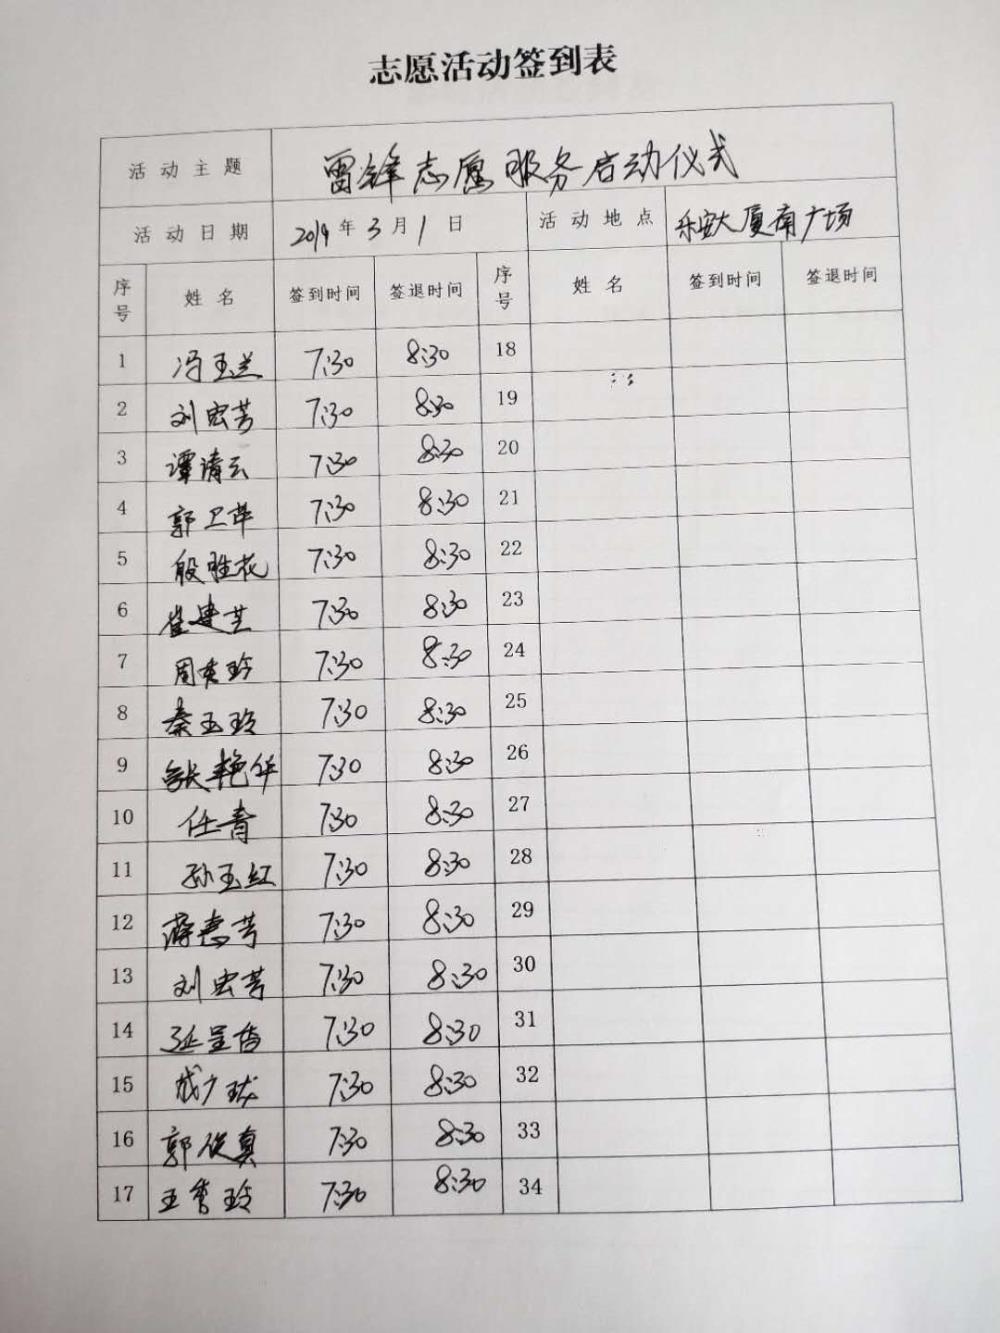 志愿活动签到表
活动主题 雷锋志愿服务启动仪式
活动日期 2019年3月1日 活动地点 乐安大厦南广场
序号 姓名 签到时间 签退时间 序号 姓名 签到时间 签退时间
1 冯玉兰 7:30 8:30 18
2 刘宏芳 7:30 8:30 19
3 谭清云 7:30 8:30 20
4 郭卫萍 7:30 8:30 21
5 殷胜花 7:30 8:30 22
6 崔建芝 7:30 8:30 23
7 周秀玲 7:30 8:30 24
8 秦玉玲 7:30 8:30 25
9 张艳华 7:30 8:30 26
10 任青 7:30 8:30 27
11 孙玉红 7:30 8:30 28
12 蒋惠芳 7:30 8:30 29
13 刘宏芳 7:30 8:30 30
14 7:30 8:30 31
15 7:30 8:30 32
16 郭俊真 7:30 8:30 33
17 王秀玲 7:30 8:30 34